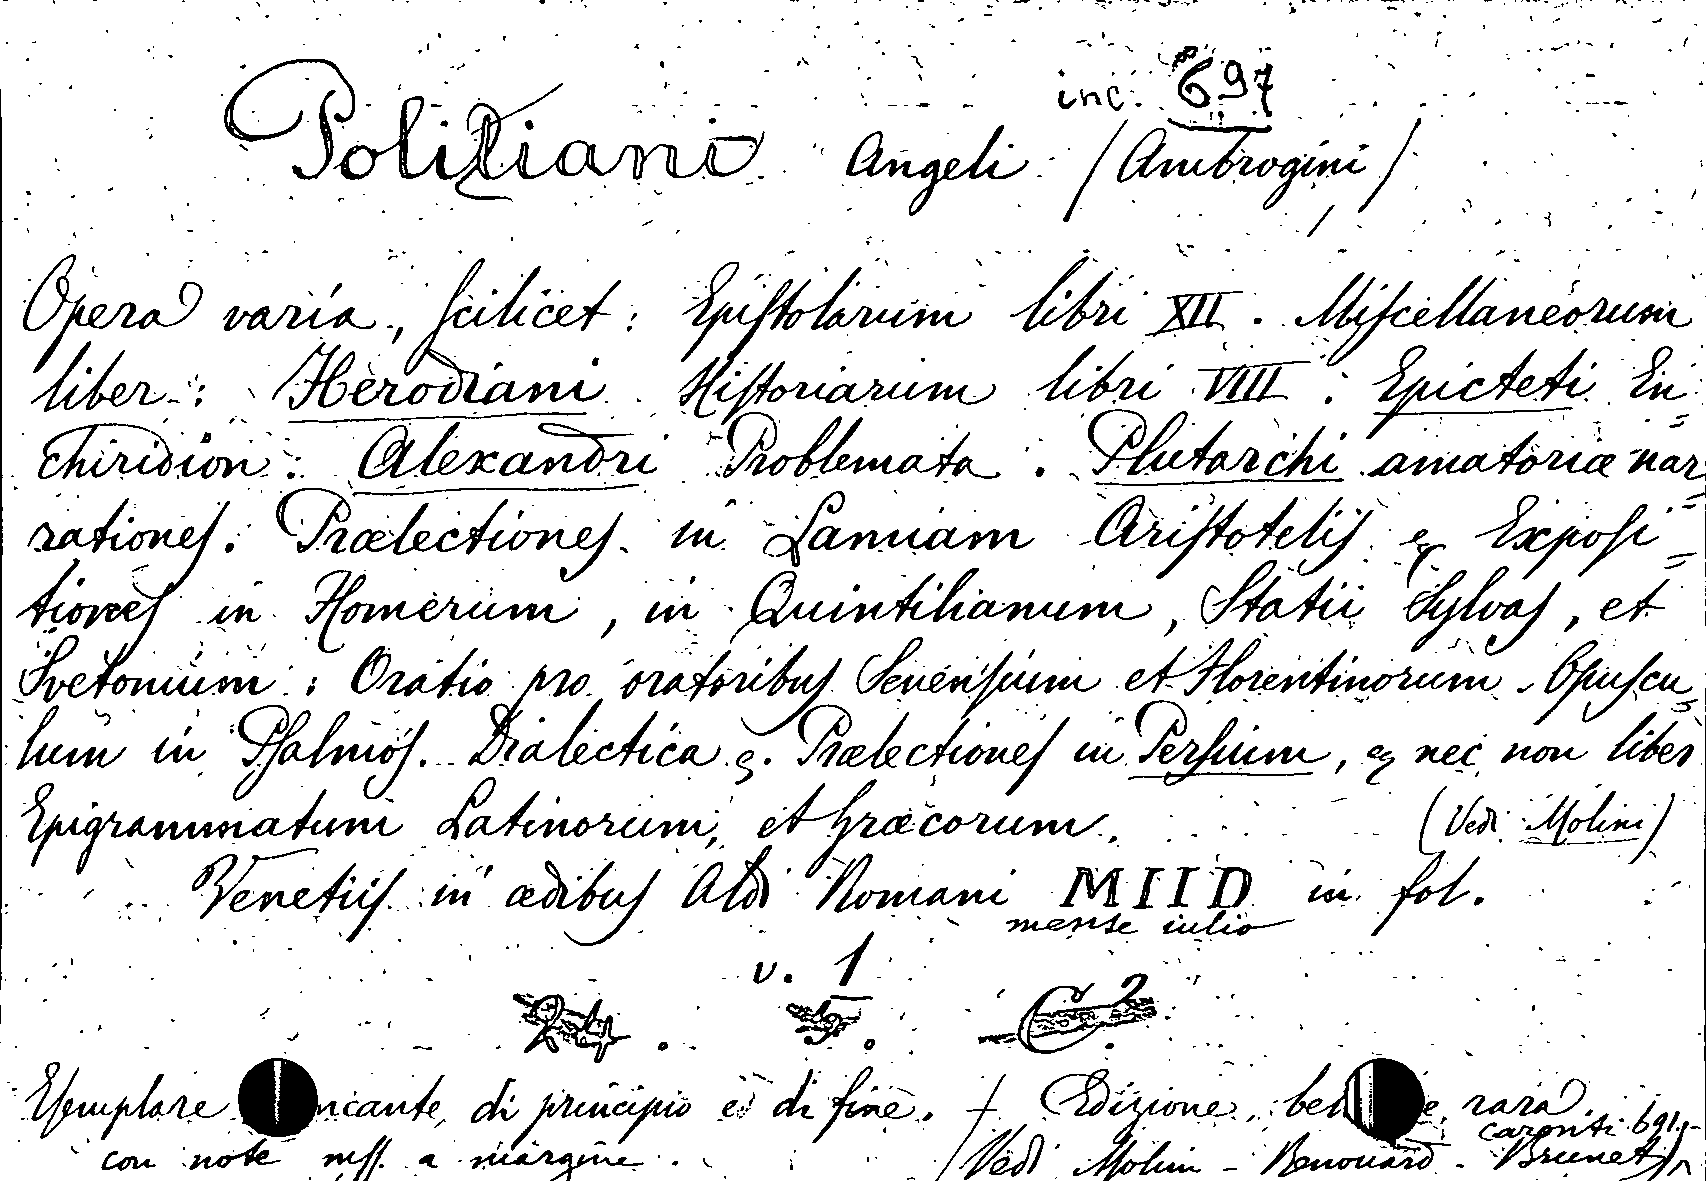 inc. 697
Poliziani Angeli (Ambrogini)
Opera varia, scilicet: Epistolarum libri XII. Miscellaneorum
liber: Herodiani Historiarum libri VIII: Epicteti En-
chiridion: Alexandri Problemata. Plutarchi amatoriæ nar-
rationes. Prælectiones in Lamiam Aristotelis & Exposi-
tiones in Homerum, in Quintilianum, Statii Sylvas, et
Svetonium: Oratio pro oratoribus Senensium et Florentinorum. Opuscu-
lum in Psalmos. Dialectica &. Prælectiones in Persium, & nec non liber
Epigrammatum Latinorum, et Græcorum. (Vedi Molini)
Venetiis in ædibus Aldi Romani MIID in fol.
mense iulio
v. 1
C 2
Esemplare ncante di principio e di fine. + Edizione bel e rara.
con note mss. a margine. (Vedi Molini - Renouard - Brunet)